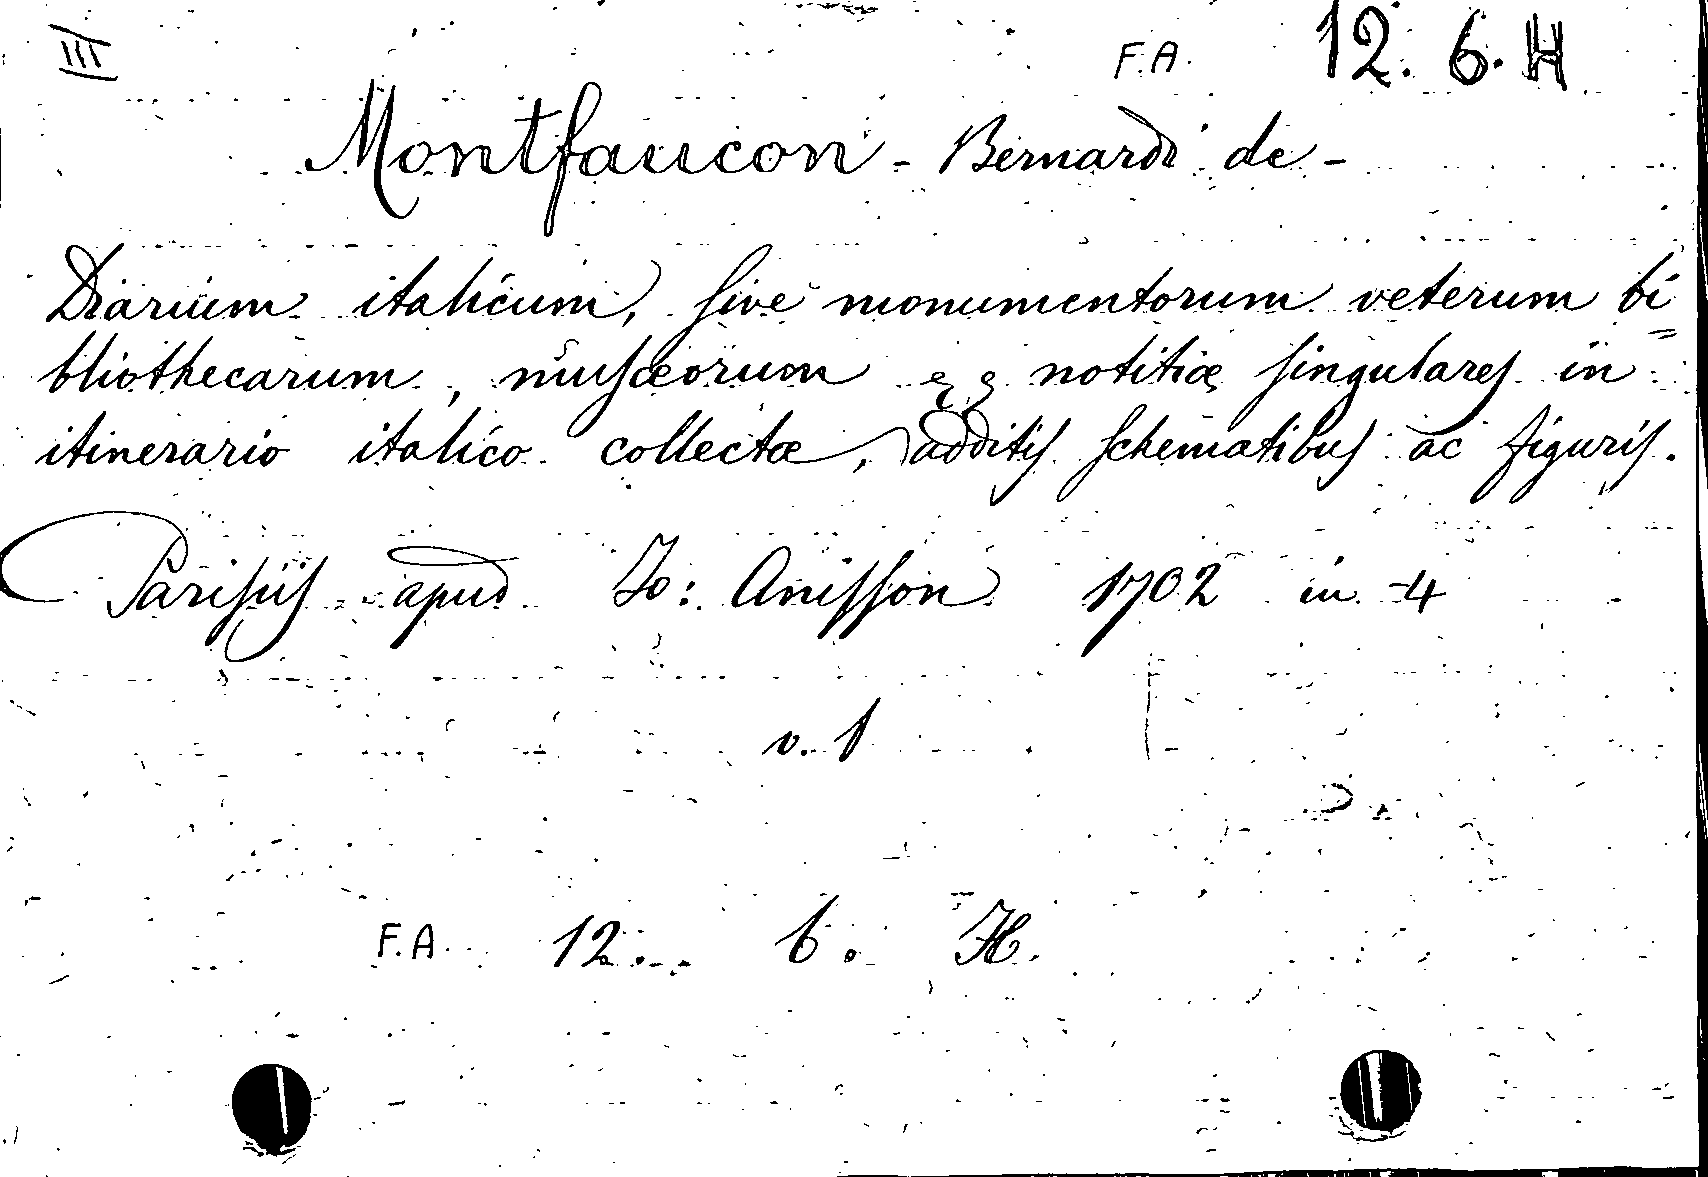 III F.A. 12. 6. H
Montfaucon - Bernardi de -
Diarium italicum, sive monumentorum veterum bi=
bliothecarum, musæorum && notitiæ singulares in
itinerario italico collectæ, additis schematibus ac figuris.
Parisiis apud Jo: Anisson 1702 in-4
v. 1
F.A. 12. 6. H.